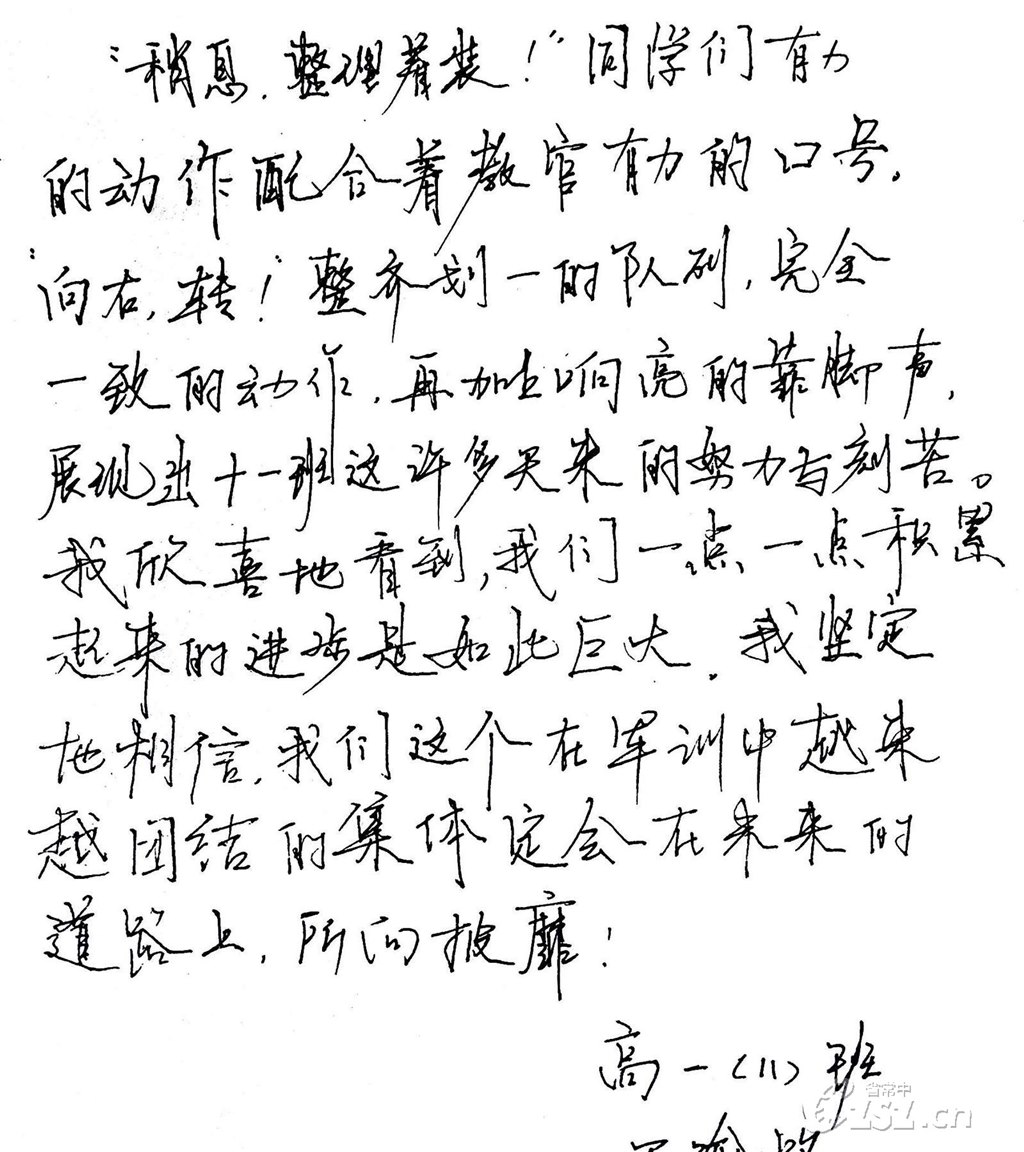 “稍息，整理着装！”同学们有力
的动作配合着教官有力的口号，
“向右，转！”整齐划一的队列，完全
一致的动作，再加上响亮的靠脚声，
展现出十一班这许多天来的努力与刻苦。
我欣喜地看到，我们一点一点积累
起来的进步是如此巨大，我坚定
地相信，我们这个在军训中越来
越团结的集体定会在未来的
道路上，所向披靡！
高一（11）班
省常中
CSZ.cn